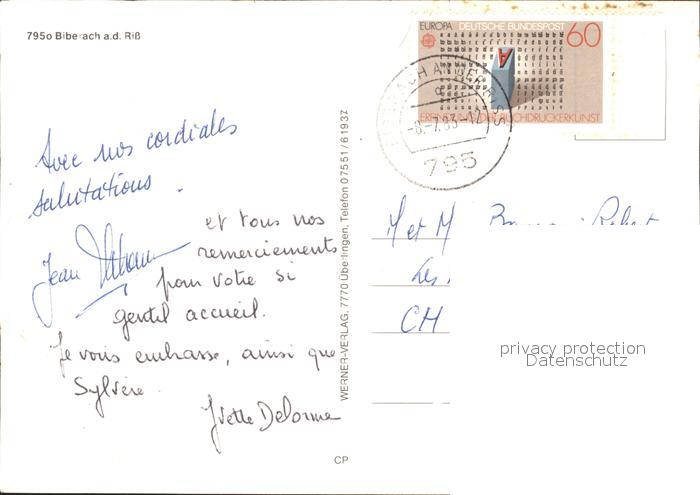 795o Biberach a.d. Riß
EUROPA DEUTSCHE BUNDESPOST 60
ERFINDUNG DER BUCHDRUCKERKUNST
BIBERACH AN DER RISS
-8.-7.83-12
795
Avec nos cordiales
salutations.
Jean Delorme
et tous nos
remerciements
pour votre si
gentil accueil.
Je vous embrasse, ainsi que
Sylvère.
Yvette Delorme
WERNER-VERLAG, 7770 Überlingen, Telefon 07551/61937
CP
M et M
Les
CH
privacy protection
Datenschutz